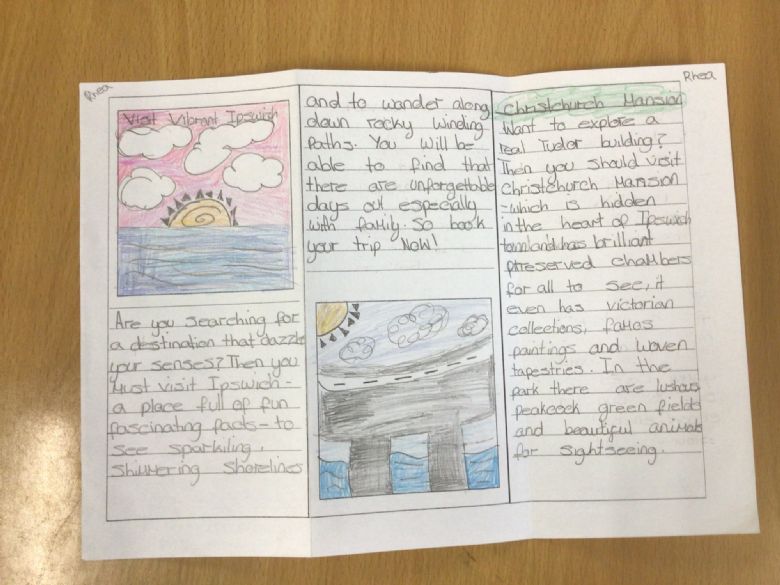 Rhea
Rhea
Visit Vibrant Ipswich
Are you searching for
a destination that dazzle
your senses? Then you
must visit Ipswich -
a place full of fun
fascinating facts - to
see sparkiling,
shimmering shorelines
and to wander along
down rocky winding
Paths. You will be
able to find that
there are unforgettable
days out especially
with family. So book
your trip Now!
Christchurch Mansion
Want to explore a
real Tudor building?
Then you should visit
Christchurch Mansion
-which is hidden
in the heart of Ipswich
town and has brilliant
preserved chambers
for all to see, it
even has victorian
collections, famos
paintings and woven
tapestries. In the
park there are lushous
peakcock green fields
and beautiful animals
for sightseeing.